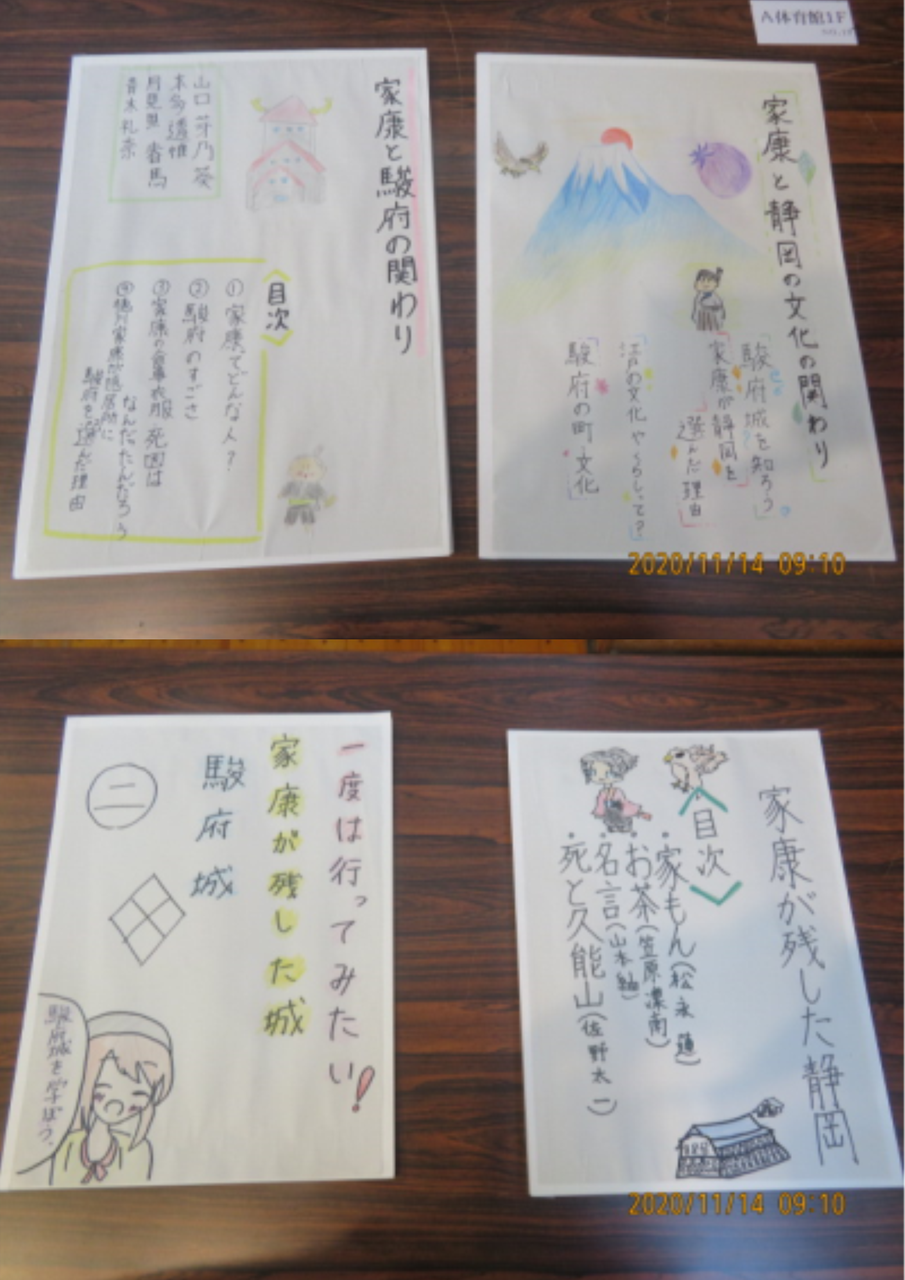 A体育館1F
家康と静岡の文化の関わり
駿府城を知ろう
家康が静岡を
選んだ理由
江戸の文化やくらしって?
駿府の町・文化
家康と駿府の関わり
山口 芽乃葵
本多 透惟
青木 礼奈
目次
①家康てどんな人?
②駿府のすごさ
③家康の食事 衣服 死因は
なんだったんだろう
駿府を選んだ理由
2020/11/14 09:10
家康が残した静岡
目次
・家もん(松永蓮)
・お茶(笠原凜南)
・名言(山本紬)
・死と久能山(佐野太一)
一度は行ってみたい!
家康が残した城
駿府城
二
駿府城を学ぼう。
2020/11/14 09:10